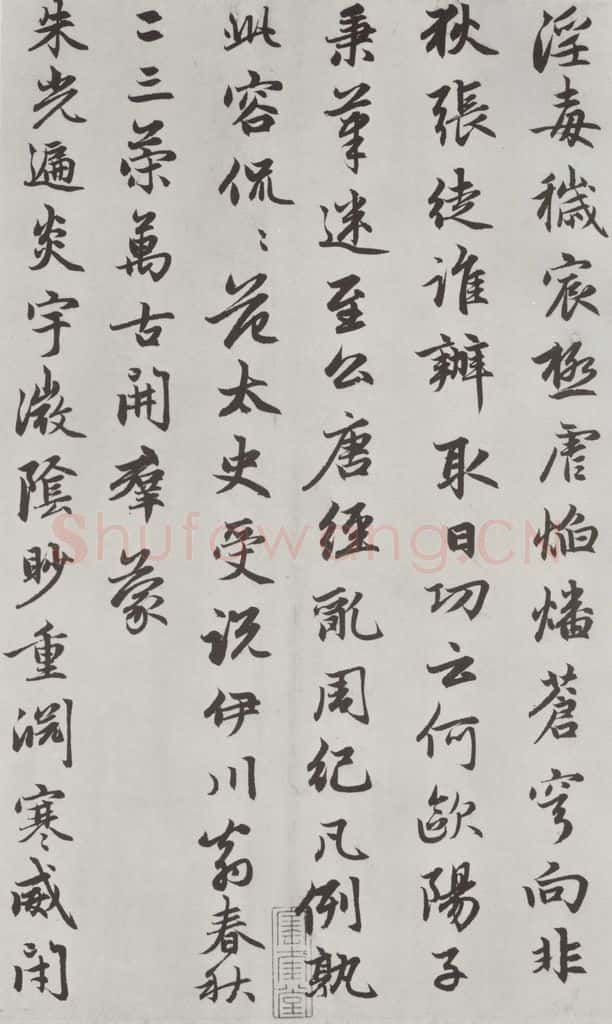 淫毒穢宸極虐焰燔蒼穹向非
狄張徒誰辦取日功云何歐陽子
秉筆迷至公唐經亂周紀凡例孰
此容侃〻范太史受說伊川翁春秋
二三策萬古開羣蒙
朱光遍炎宇微陰眇重淵寒威閉
Shufawang.CN